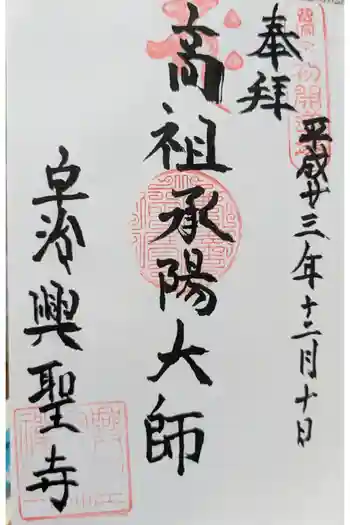 奉拝
平成廿三年十二月十日
高祖承陽大師
宇治興聖寺